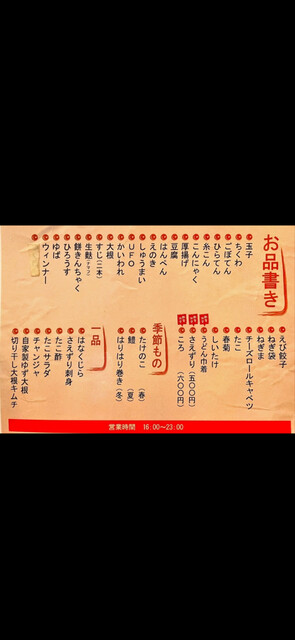 お品書き
玉子
ちくわ
ごぼてん
ひらてん
糸こん
こんにゃく
厚揚げ
豆腐
はんぺん
えのき
しゅうまい
UFO
かいわれ
大根
すじ(二本)
生麩(ナマフ)
餅きんちゃく
ひろうす
ゆば
ウィンナー
えび餃子
ねぎ袋
ねぎま
チーズロールキャベツ
たこ
春菊
しいたけ
うどん巾着
さえずり(五〇〇円)
ころ(六〇〇円)
季節もの
たけのこ(春)
鱧(夏)
はりはり巻き(冬)
一品
はなくじら
さえずり刺身
たこ酢
たこサラダ
チャンジャ
自家製ゆず大根
切り干し大根キムチ
営業時間 16:00~23:00